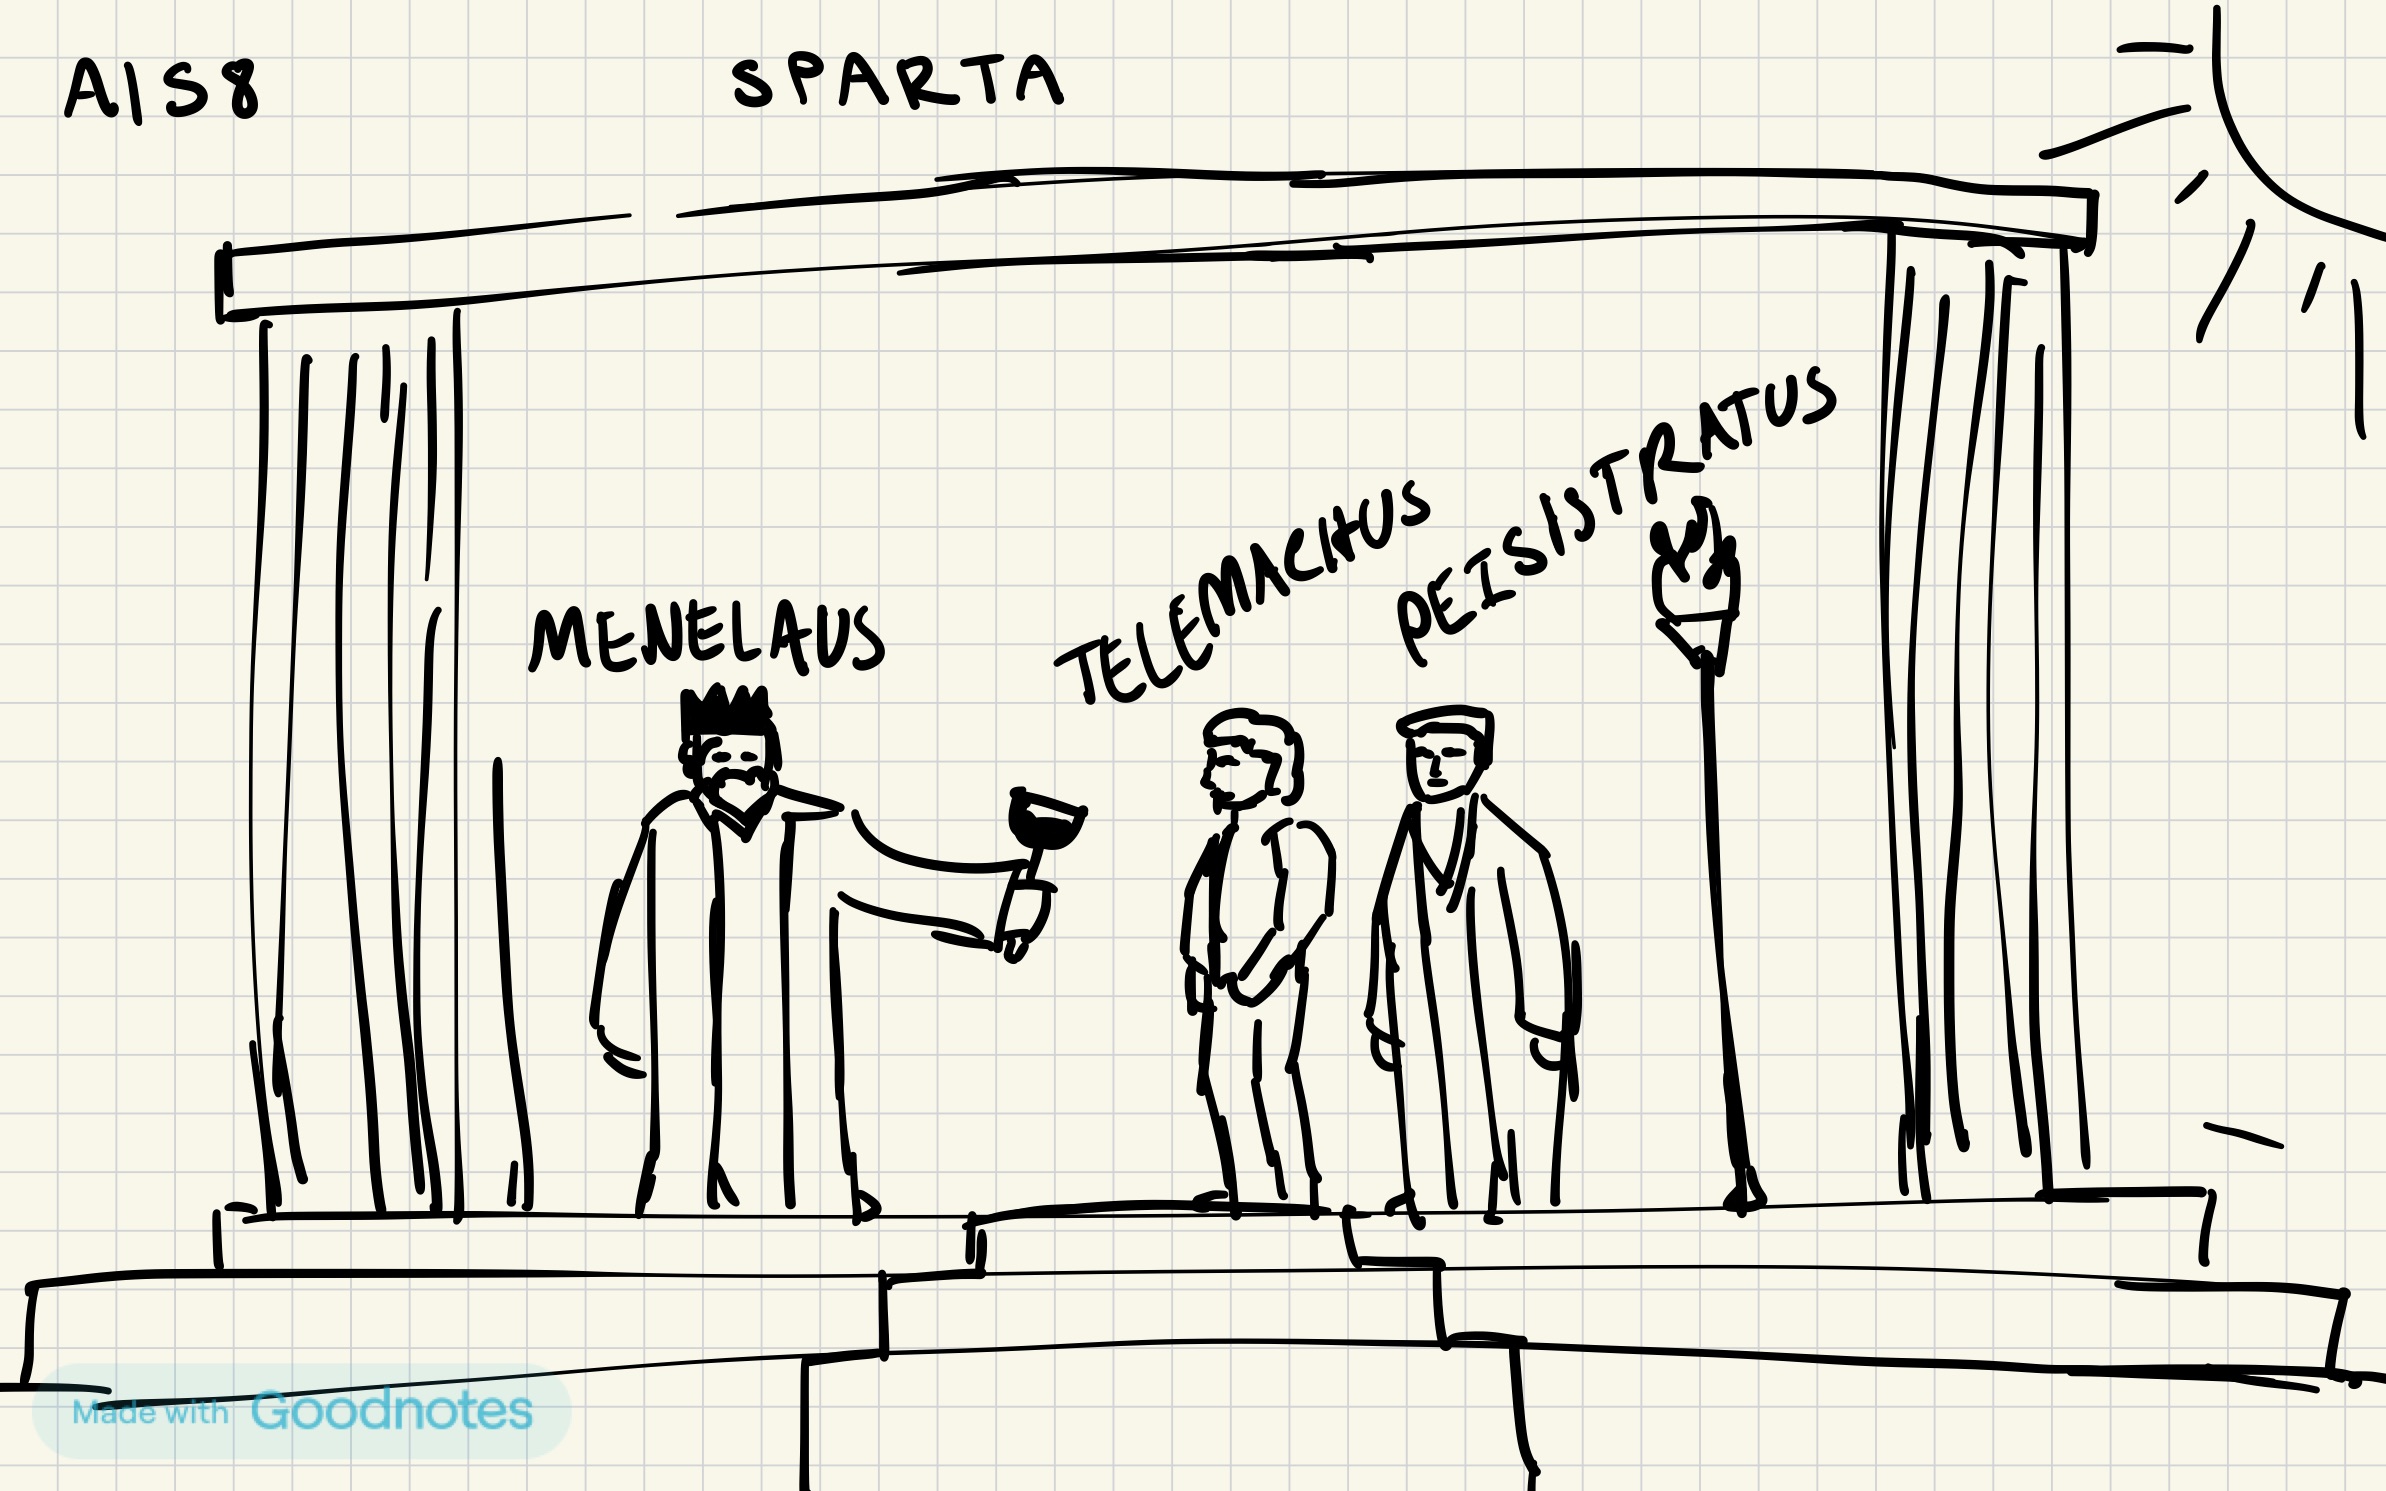 A1S8
SPARTA
MENELAUS
TELEMACHUS
PEISISTRATUS
Made with Goodnotes